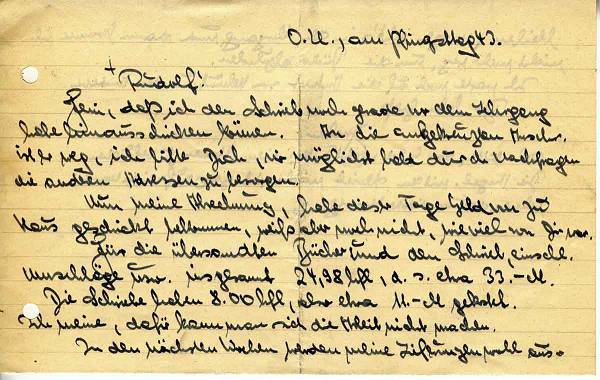 O.U., am Pfingsttag 43.
Rudolf!
Fein, daß ich den Schrieb noch gerade vor dem Lehrgang
habe hinausschicken können. An die angekreuzten Anschr.
ist er weg, ich bitte Dich, mir möglichst bald durch Nachfragen
die anderen Adressen zu besorgen.
Nun meine Abrechnung, habe dieser Tage Geld von zu
Haus geschickt bekommen, weiß aber noch nicht, wie viel von Dir war.
Für die übersandten Bücher und den Schrieb, einschl.
Umschläge usw. insgesamt 24,98 hfl, d. s. etwa 33.-M.
Die Schriebe haben 8.00 hfl, also etwa 11.-M gekostet.
Ich meine, dafür kann man sich die Arbeit nicht machen.
In den nächsten Wochen werden meine wohl aus-